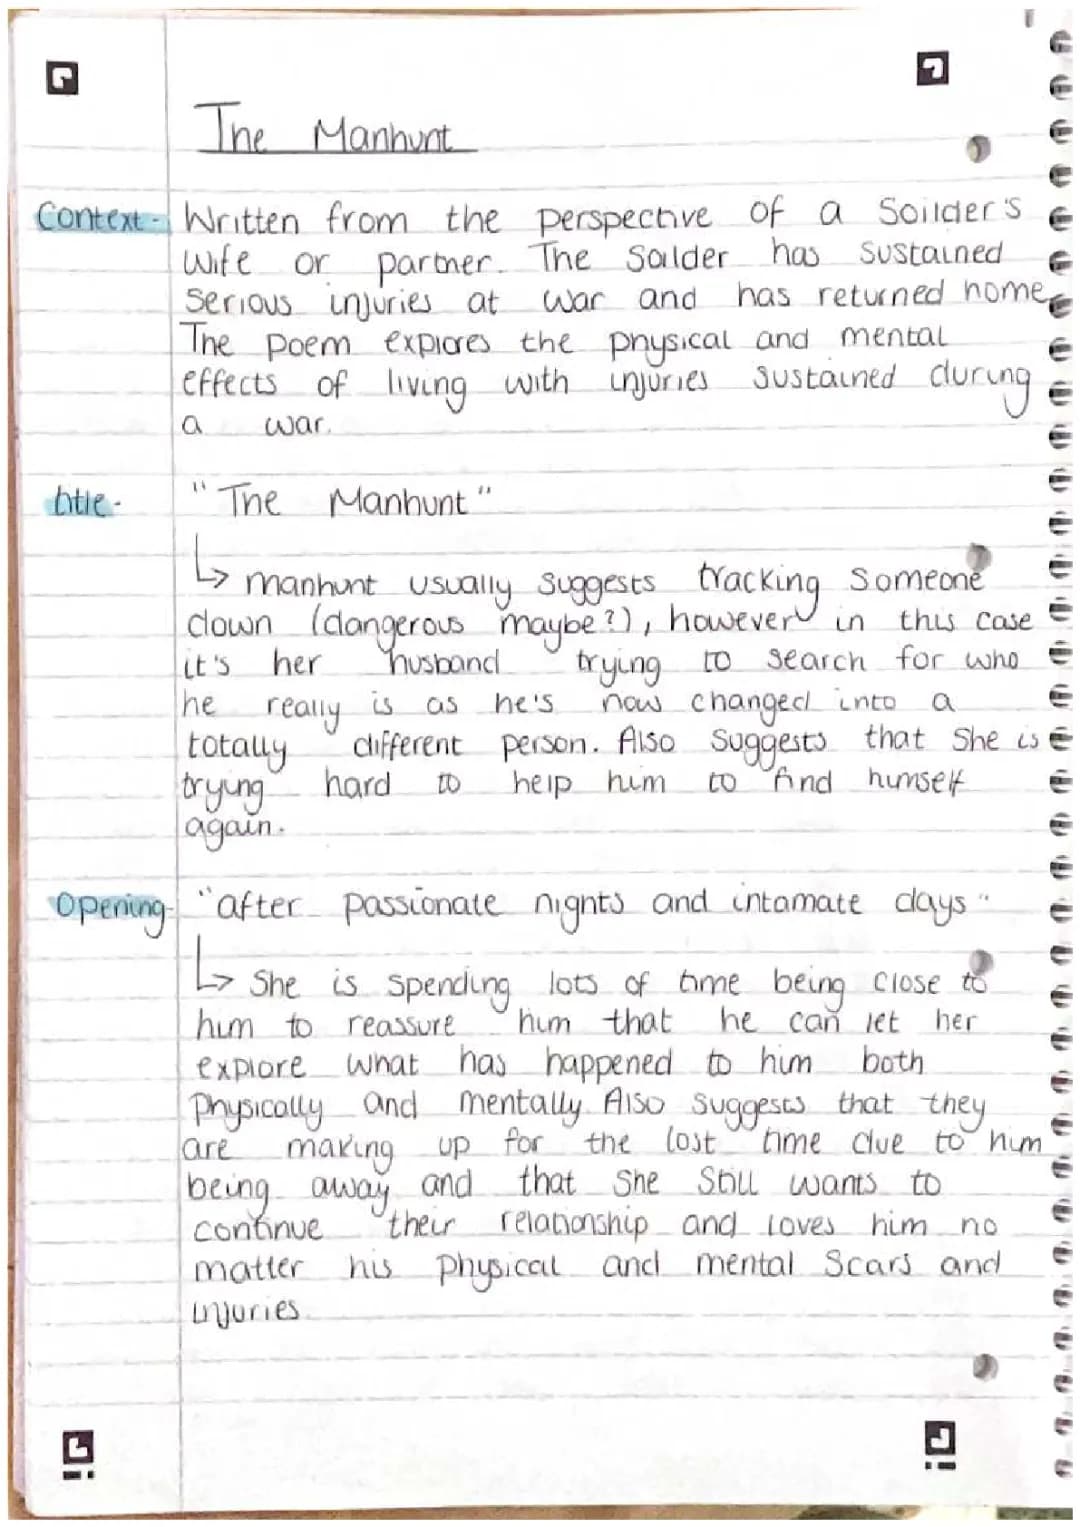 The Manhunt
Context - Written from the perspective of a Soilder's
wife or partner. The Soilder has sustained
serious injuries at war and has returned home.
The poem explores the physical and mental
effects of living with injuries sustained during
a war.
title - "The Manhunt"
↳ manhunt usually suggests tracking someone
down (dangerous maybe?), however in this case
it's her husband trying to search for who
he really is as he's now changed into a
totally different person. Also suggests that she is
trying hard to help him to find himself
again.
Opening - "after passionate nights and intamate days"
↳ She is spending lots of time being close to
him to reassure him that he can let her
explore what has happened to him both
physically and mentally. Also suggests that they
are making up for the lost time due to him
being away and that she still wants to
continue their relationship and loves him no
matter his physical and mental scars and
injuries.